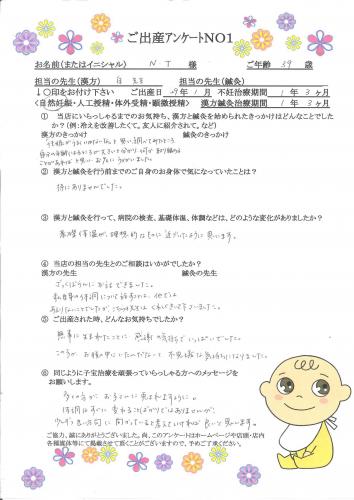 ご出産アンケートNO1
お名前(またはイニシャル) N・T 様 ご年齢 39 歳
担当の先生(漢方) 先生 担当の先生(鍼灸)
↓○印をお付け下さい ご出産日 29年 1月 不妊治療期間 1年 3ヶ月
<自然妊娠・人工授精・体外受精・顕微授精> 漢方鍼灸治療期間 1年 3ヶ月
① 当店にいらっしゃるまでのお気持ち、漢方と鍼灸を始められたきっかけはどんなことでしたか?(例:冷えを改善したくて。友人に紹介されて。など)
漢方のきっかけ 鍼灸のきっかけ
② 漢方と鍼灸を行う前までのご自身のお身体で気になっていたことは?
特にありませんでした。
③ 漢方と鍼灸を行って、病院の検査、基礎体温、体調などは、どのような変化がありましたか?
基礎体温が、理想的なものに近づいたように思います。
④ 当店の担当の先生とのご相談はいかがでしたか?
漢方の先生 鍼灸の先生
ざっくばらんにお話できました。
⑤ ご出産された時、どんなお気持ちでしたか?
無事に生まれたことに感謝の気持ちでいっぱいでした。
この子が、お腹の中にいたんだなって不思議な気持ちになりました。
⑥ 同じように子宝治療を頑張っていらっしゃる方へのメッセージをお願いします。
多くの方がお子さんに恵まれますように。
体調はすぐに変わることばかりではありませんが、
少しずつ良い方向に向かっていると考えていければ良いと思います。
ご協力、誠にありがとうございました。尚、このアンケートはホームページや店頭・店内
各種媒体等にて掲載させて頂くことがございますので、予めご了承ください。